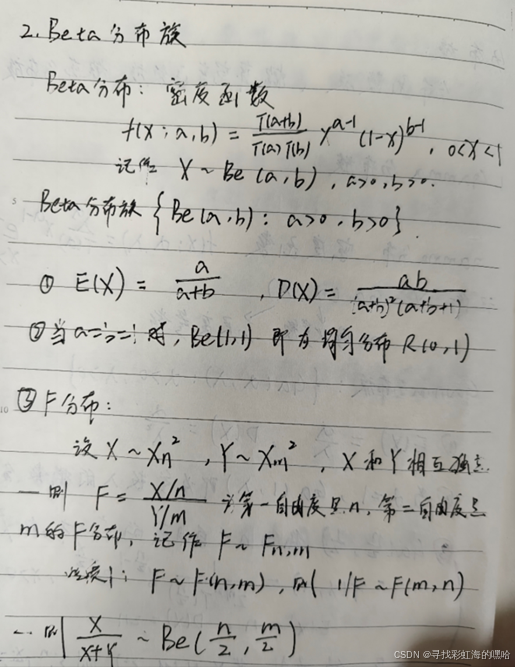 2. Beta分布族
Beta分布: 密度函数
f(x; a,b) = Γ(a+b)/Γ(a)Γ(b) x^{a-1} (1-x)^{b-1}, 0<x<1
记作 X ~ Be(a,b), a>0, b>0.
Beta分布族 {Be(a,b): a>0, b>0}.
① E(X) = a/(a+b), D(X) = ab/((a+b)²(a+b+1))
②当a=b=1时, Be(1,1) 即为均匀分布 R(0,1)
③F分布:
设 X~X_n², Y~X_m², X和Y相互独立
则 F = (X/n)/(Y/m) 第一自由度是n, 第二自由度是
m的F分布, 记作 F~F_{n,m}
性质1: F~F(n,m), 则 1/F~F(m,n)
则 X/(X+Y) ~ Be(n/2, m/2)
CSDN @寻找彩虹海的嘿哈